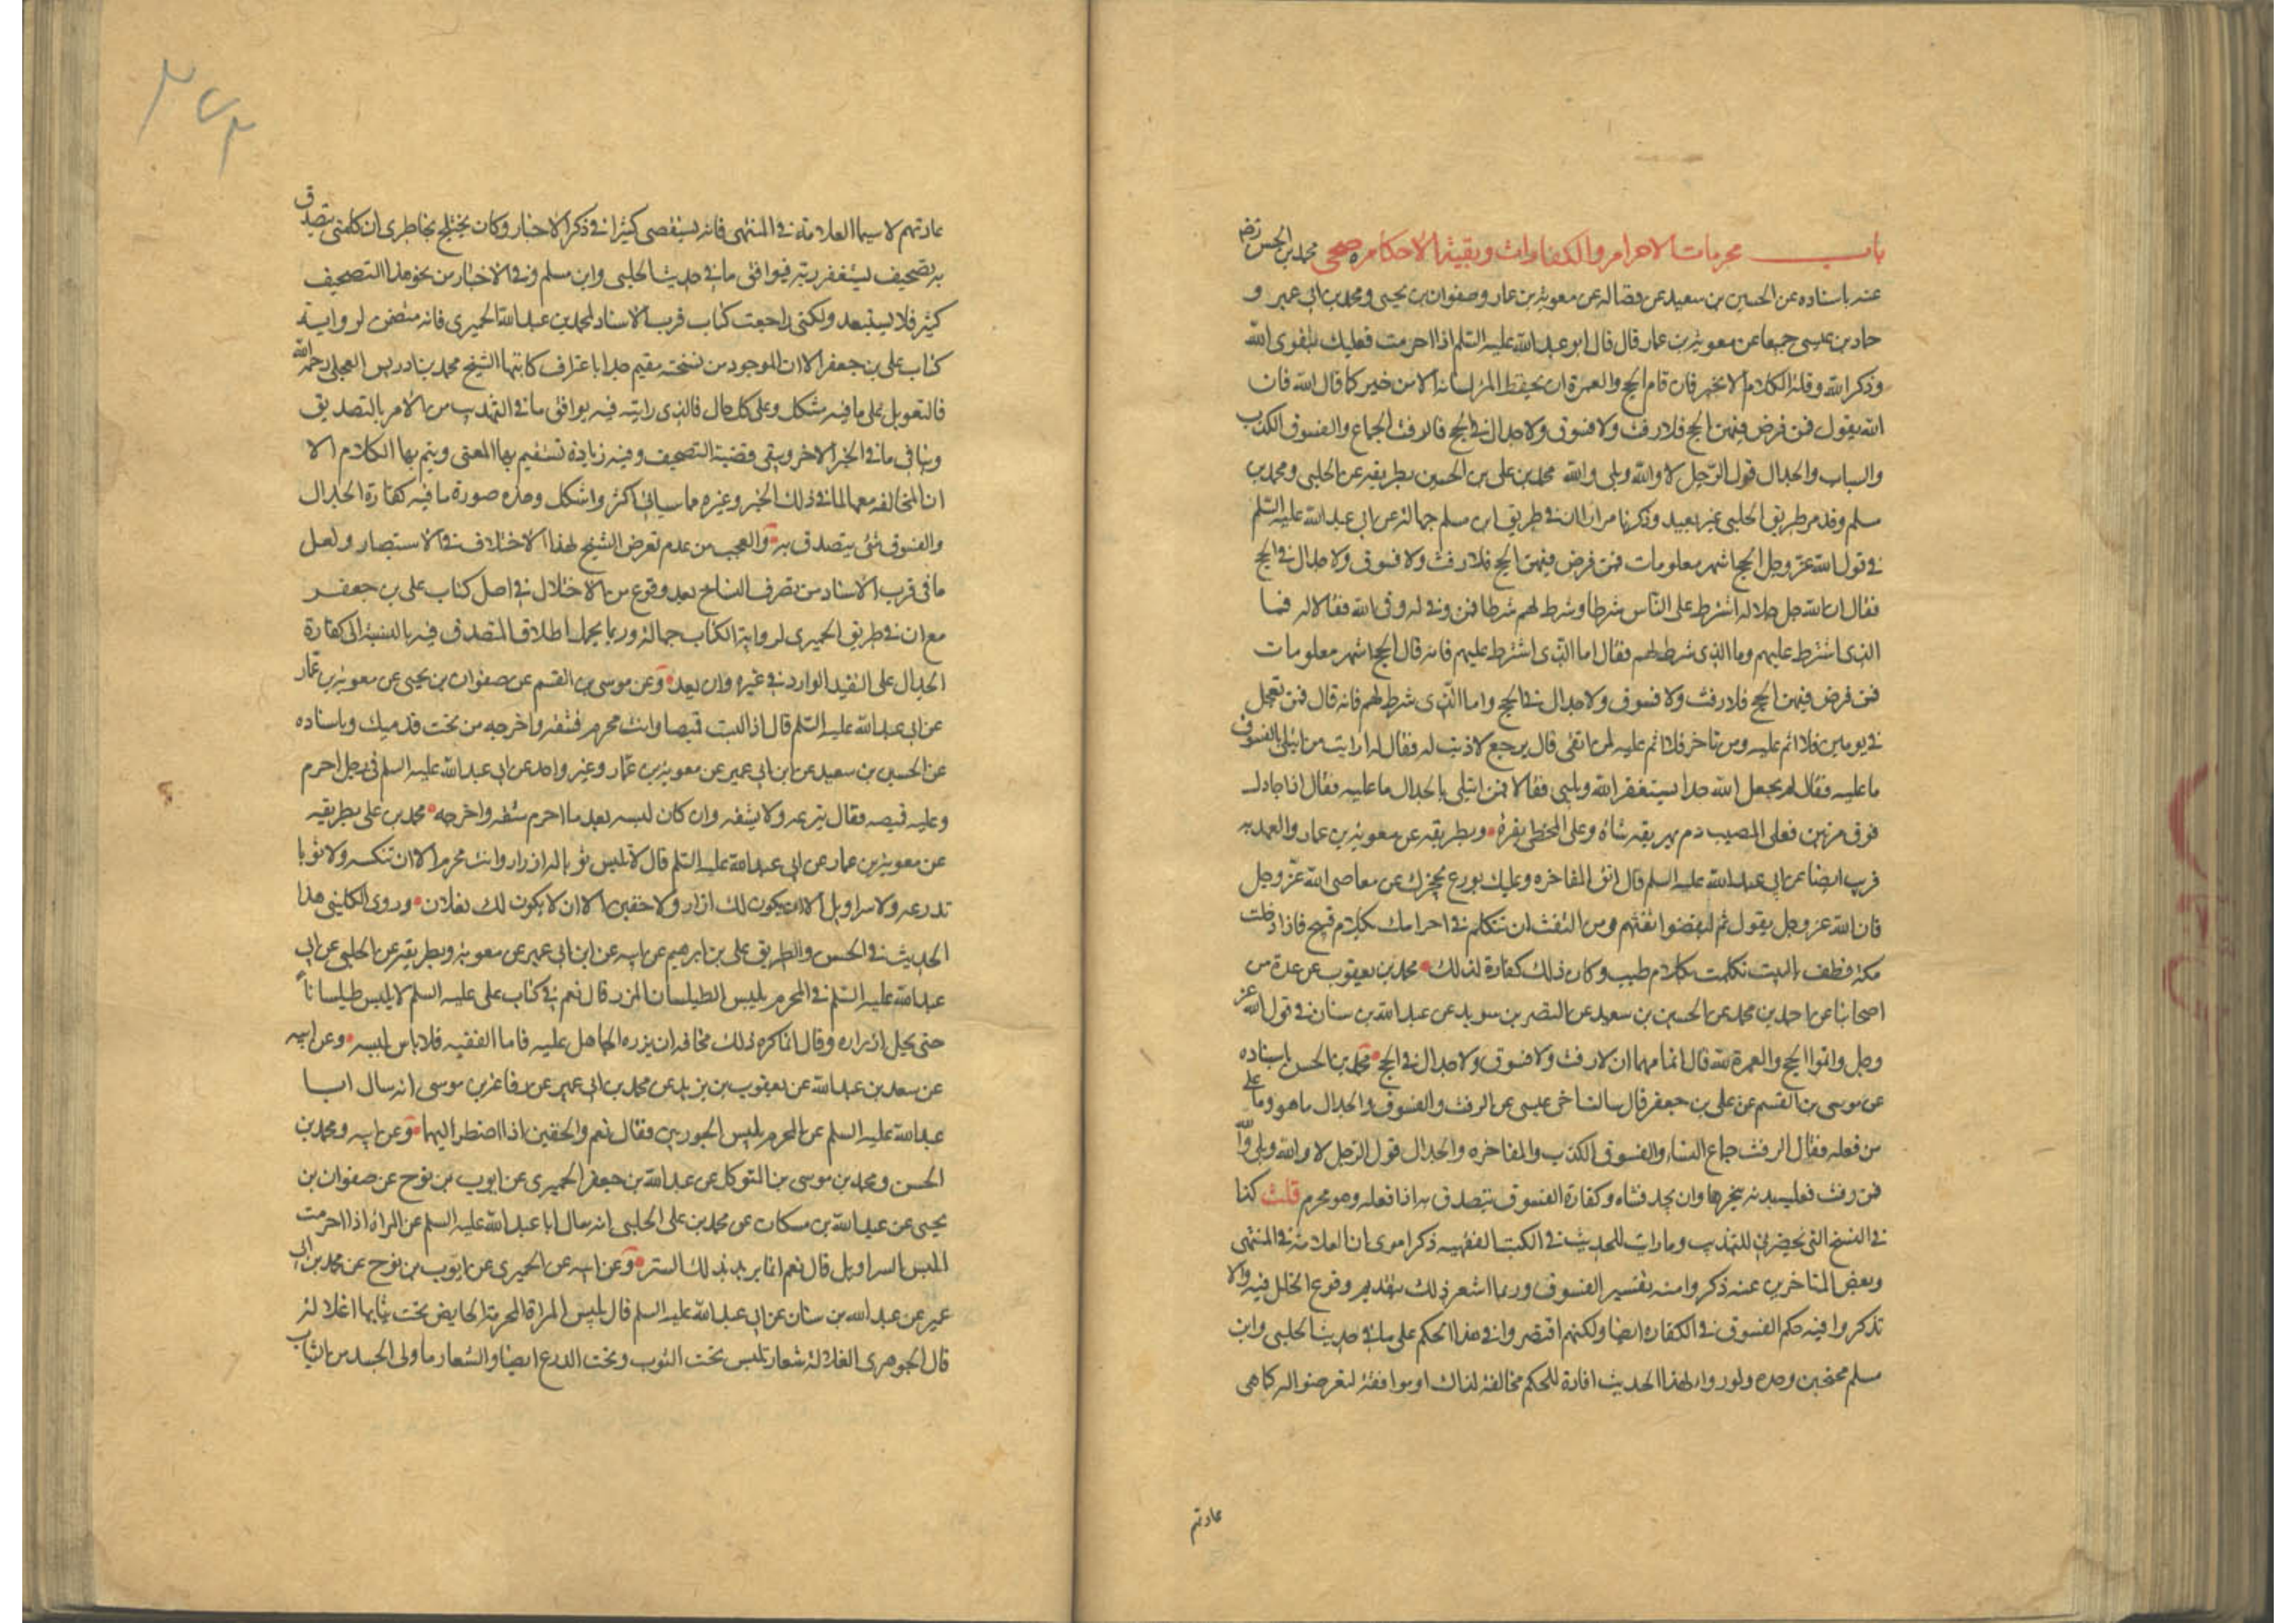 باب محرمات الاحرام والكفارات وبقية الاحكام صحى محمد بن الحسن رضى
عنه باسناده عن الحسين بن سعيد عن فضالة عن معوية بن عمار وصفوان بن يحيى ومحمد بن ابى عمير و
حماد بن عيسى جميعا عن معوية بن عمار قال قال ابو عبد الله عليه السلم اذا احرمت فعليك بتقوى الله
وذكر الله وقلة الكلام الا بخير فان تمام الحج والعمرة ان يحفظ المرء لسانه الا من خير كما قال الله فان
الله يقول فمن فرض فيهن الحج فلا رفث ولا فسوق ولا جدال فى الحج فالرفث الجماع والفسوق الكذب
والسباب والجدال قول الرجل لا والله وبلى والله محمد بن على بن الحسين بطريقيه عن الحلبى ومحمد بن
مسلم وقد مر طريق الحلبى غير بعيد وذكرنا مرارا ان فى طريق ابن مسلم جهالة عن ابى عبد الله عليه السلم
فى قول الله عز وجل الحج اشهر معلومات فمن فرض فيهن الحج فلا رفث ولا فسوق ولا جدال فى الحج
فقال ان الله جل جلاله اشترط على الناس شرطا وشرط لهم شرطا فمن وفى له وفى الله فقالا له فما
الذى اشترط عليهم وما الذى شرط لهم فقال اما الذى اشترط عليهم فانه قال الحج اشهر معلومات
فمن فرض فيهن الحج فلا رفث ولا فسوق ولا جدال فى الحج واما الذى شرط لهم فانه قال فمن تعجل
فى يومين فلا اثم عليه ومن تاخر فلا اثم عليه لمن اتقى قال يرجع لا ذنب له فقال له ارايت من ابتلى بالفسوق
ما عليه فقال لم يجعل الله حدا يستغفر الله ويلبى فقالا فمن ابتلى بالجدال ما عليه فقال اذا جادل
فوق مرتين فعلى المصيب دم يهريقه شاة وعلى المخطى بقرة وبطريقه عن معوية بن عمار والعهد به
قريب ايضا عن ابى عبد الله عليه السلم قال اتق المفاخرة وعليك بورع يحجزك عن معاصى الله عز وجل
فان الله عز وجل يقول ثم ليقضوا تفثهم ومن التفث ان تتكلم فى احرامك بكلام قبيح فاذا دخلت
مكة فطف بالبيت تكلمت بكلام طيب وكان ذلك كفارة لذلك محمد بن يعقوب عن عدة من
اصحابنا عن احمد بن محمد عن الحسين بن سعيد عن النضر بن سويد عن عبد الله بن سنان فى قول الله عز
وجل واتموا الحج والعمرة لله قال اتمامهما ان لا رفث ولا فسوق ولا جدال فى الحج محمد بن الحسن باسناده
عن موسى بن القسم عن على بن جعفر قال سالت اخى عيسى عن الرفث والفسوق والجدال ما هو وما على
من فعله فقال الرفث جماع النساء والفسوق الكذب والمفاخرة والجدال قول الرجل لا والله وبلى والله
فمن رفث فعليه بدنة ينحرها وان يجد فشاة وكفارة الفسوق يتصدق به اذا فعله وهو محرم قلت كذا
فى النسخ التى تحضرنى للتهذيب وما رايت للحديث فى الكتب الفقهية ذكرا سوى ان العلامة فى المنتهى
وبعض المتاخرين عنه ذكروا منه تفسير الفسوق وربما اشعر ذلك بتقديم وقوع الخلل فيه والا
تذكروا فيه حكم الفسوق فى الكفارة ايضا ولكنهم اقتصروا فى هذا الحكم على ما فى حديث الحلبى وابن
مسلم محتجين وحده ولو راوا لهذا الحديث افادة للحكم مخالفة لذاك او موافقة لتعرضوا له كما هى
عادتهم
عادتهم لا سيما العلامة فى المنتهى فانه يستقصى كثيرا فى ذكر الاخبار وكان يختلج بخاطرى ان كلمتى يتصدق
به تصحيف ليستغفر ربه فيوافق ما فى حديث الحلبى وابن مسلم وفى الاخبار من نحو هذا التصحيف
كثير فلا يستبعد ولكنى راجعت كتاب قرب الاسناد لمحمد بن عبد الله الحميرى فانه متضمن لرواية
كتاب على بن جعفر الا ان الموجود من نسخته سقيم جدا باعتراف كاتبها الشيخ محمد بن ادريس العجلى رحمه الله
فالتعويل على ما فيه مشكل وعلى كل حال فالذى رايته فيه يوافق ما فى التهذيب من الامر بالتصديق
وينافى ما فى الخبر الاخر وينفى قضية التصحيف وفيه زيادة تستقيم بها المعنى ويتم بها الكلام الا
ان المخالفة معها لما فى ذلك الخبر وغيره مما سياتى اكثر واشكل وهذه صورة ما فيه كفارة الجدال
والفسوق شئ يتصدق به والعجب من عدم تعرض الشيخ لهذا الاختلاف فى الاستبصار ولعل
ما فى قرب الاسناد من تصرف الناسخ بعد وقوع من الاختلال فى اصل كتاب على بن جعفر
مع ان فى طريق الحميرى لرواية الكتاب جهالة وربما يحمل اطلاق المتصدق فيه بالنسبة الى كفارة
الجدال على التقييد الوارد فى غيره وان بعد وعن موسى بن القسم عن صفوان بن يحيى عن معوية بن عمار
عن ابى عبد الله عليه السلم قال اذا لبست قميصا وانت محرم فشقه واخرجه من تحت قدميك وباسناده
عن الحسين بن سعيد عن ابن ابى عمير عن معوية بن عمار وغير واحد عن ابى عبد الله عليه السلم فى رجل احرم
وعليه قميصه فقال ينزعه ولا يشقه وان كان لبسه بعد ما احرم شقه واخرجه محمد بن على بطريقيه
عن معوية بن عمار عن ابى عبد الله عليه السلم قال لا تلبس ثوبا له ازرار وانت محرم الا ان تنكسه ولا ثوبا
تدرعه ولا سراويل الا ان يكون لك ازار ولا خفين الا ان لا يكون لك نعلان وروى الكلينى هذا
الحديث فى الحسن والطريق على بن ابرهيم عن ابيه عن ابن ابى عمير عن معوية وبطريقه عن الحلبى عن ابى
عبد الله عليه السلم فى المحرم يلبس الطيلسان المزرر قال نعم فى كتاب على عليه السلم لا يلبس طيلسانا
حتى يحل ازراره وقال انما كره ذلك مخافة ان يزره الجاهل عليه فاما الفقيه فلا باس بلبسه وعن ابيه
عن سعد بن عبد الله عن يعقوب بن يزيد عن محمد بن ابى عمير عن رفاعة بن موسى انه سال ابا
عبد الله عليه السلم عن المحرم يلبس الجوربين فقال نعم والخفين اذا اضطر اليهما وعن ابيه ومحمد بن
الحسن ومحمد بن موسى بن المتوكل عن عبد الله بن جعفر الحميرى عن ايوب بن نوح عن صفوان بن
يحيى عن عبد الله بن مسكان عن محمد بن على الحلبى انه سال ابا عبد الله عليه السلم عن المراة اذا احرمت
اتلبس السراويل قال نعم انما يريد بذلك الستر وعن ابيه عن الحميرى عن ايوب بن نوح عن محمد بن ابى
عمير عن عبد الله بن سنان عن ابى عبد الله عليه السلم قال تلبس المراة المحرمة الحايض تحت ثيابها غلالة
قال الجوهرى الغلالة شعار تلبس تحت الثوب وتحت الدرع ايضا والشعار ما ولى الجسد من الثياب